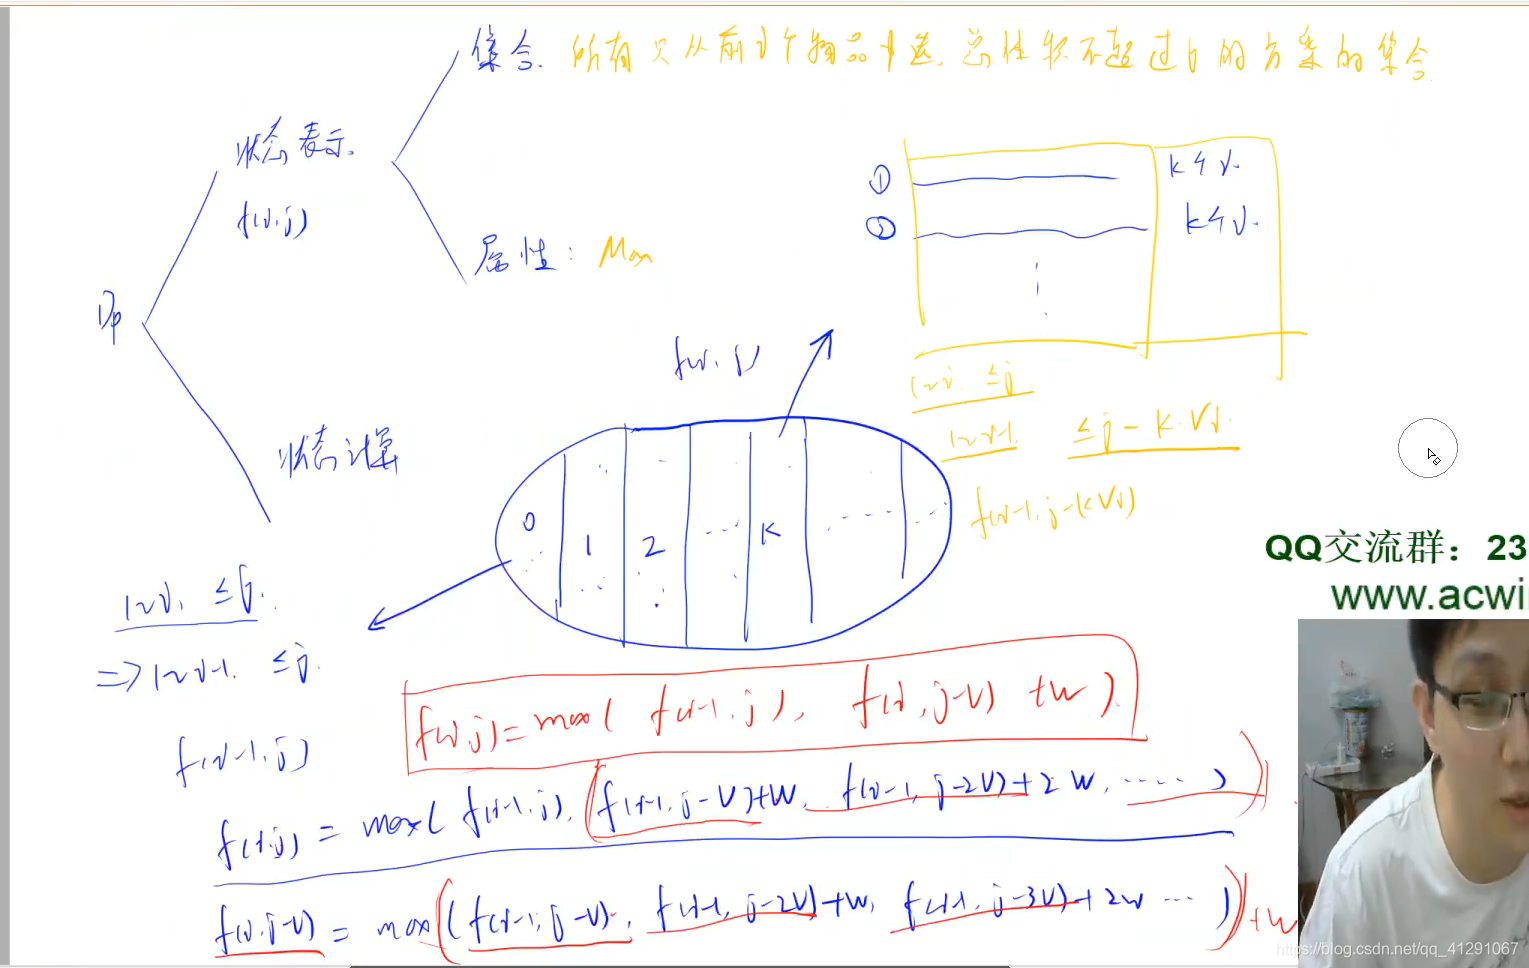 集合. 所有只从前i个物品中选, 总体积不超过j的方案的集合
状态表示.
f(i,j)
属性: Max
DP
状态计算
① k个i.
② k个i.
f(i,j)
1~i. ≤j
1~i-1. ≤j-k·Vi.
f(i-1, j-kVi)
0 1 2 k
1~i. ≤j.
=> 1~i-1. ≤j.
f(i-1,j)
f(i,j)=max( f(i-1,j), f(i,j-V)+W).
f(i,j) = max( f(i-1,j), f(i-1,j-V)+W, f(i-1,j-2V)+2W, ...... )
f(i,j-V) = max( f(i-1,j-V), f(i-1,j-2V)+W, f(i-1,j-3V)+2W ... ) +W
QQ交流群：23
www.acwi
https://blog.csdn.net/qq_41291067